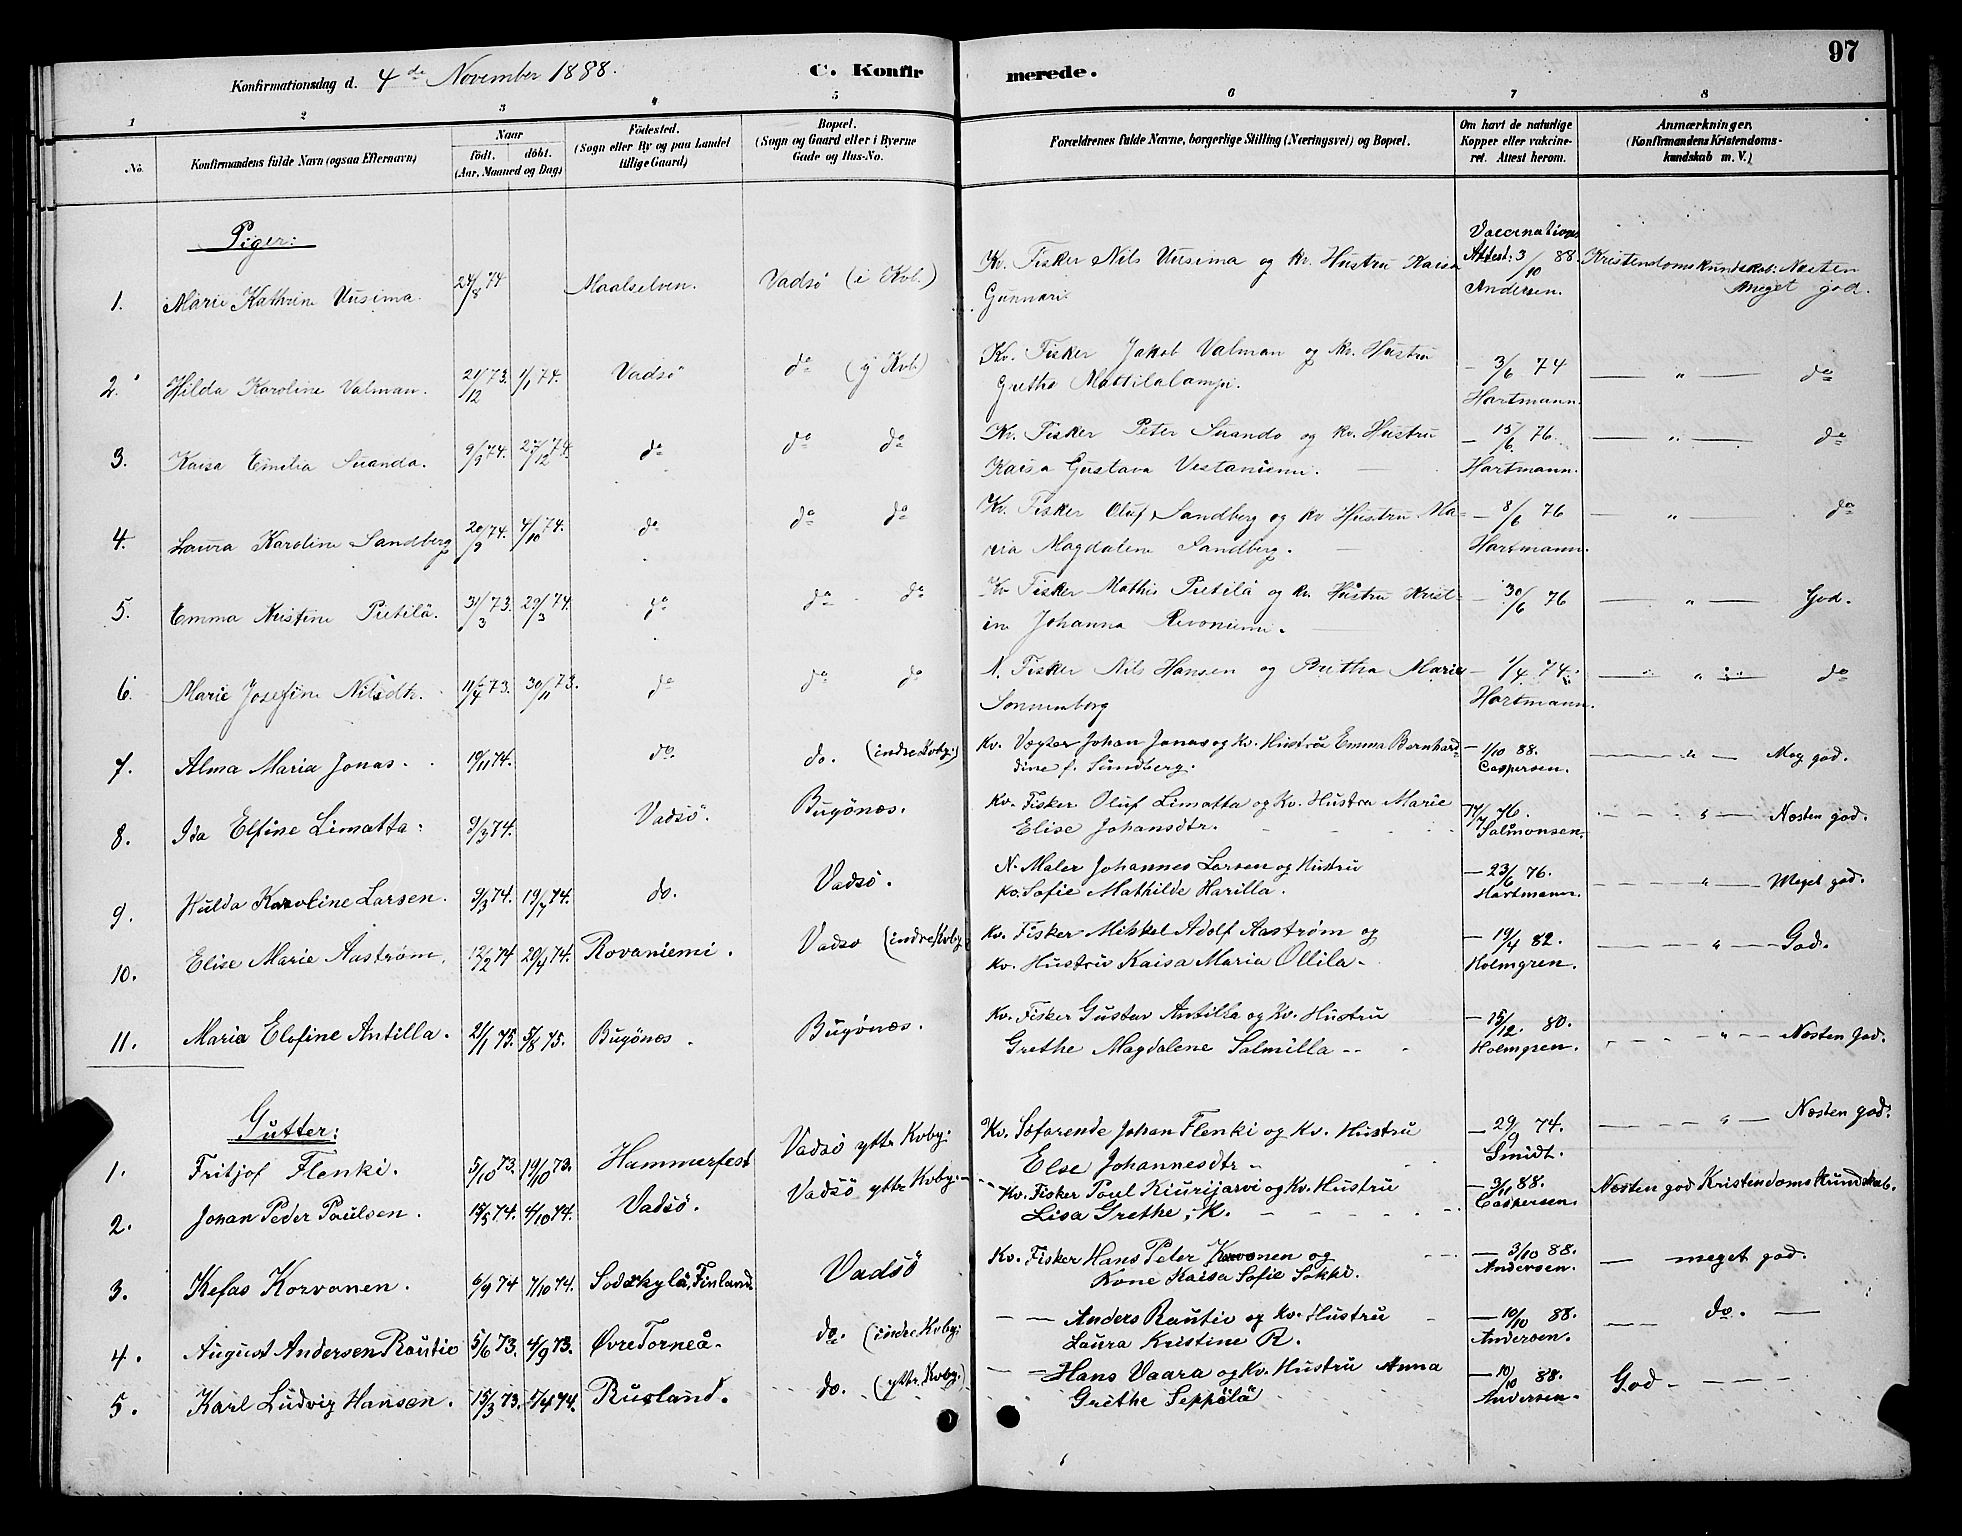 97
Konfirmationsdag d. 4de November 1888. C. Konfirmerede.
1 2 3 4 5 6 7 8
No. Konfirmandens fulde Navn (ogsaa Efternavn) Naar født. døbt. (Aar, Maaned og Dag) Fødested. (Sogn eller By og paa Landet tillige Gaard) Bopæl. (Sogn og Gaard eller i Byerne Gade og Hus-No. Forældrenes fulde Navne, borgerlige Stilling (Næringsvei) og Bopæl. Om havt de naturlige Kopper eller vaccineret. Attest herom. Anmærkninger. (Konfirmandens Kristendomskundskab m. V.)
Piger:
1. Marie Kathrine Uusima. 24/8 74 Maalselven. Vadsö (i Kvb.) Kv. Fisker Nils Uusima og kv. Hustru Kaisa Vaccinations Attest: 3/10 88. Kristendomskundskab: Næsten
Gunnari. Andersen. Meget god.
2. Hilda Karoline Valman. 21/12 73. 1/1 74. Vadsö do (y Kvb.) Kv. Fisker Jakob Valman og kv. Hustru — 3/6 74 — " — do
Grethe Mattilalampi. Hartmann.
3. Kaisa Emilia Suanda. 9/9 74. 27/12 74. do do do Kv. Fisker Peter Suando og kv. Hustru — 15/6 76. — " — do
Kaisa Gustava Vestaniemi. — Hartmann.
4. Laura Karoline Sandberg 20/9 74. 4/10 74. do do do Kv. Fisker Oluf Sandberg og kv Hustru Ma- — 8/6 76 — " — do
ria Magdalene Sandberg. — Hartmann.
5. Emma Kristine Pietilä. 31/3 73. 29/3 74. do do do Kv Fisker Mathis Pietilä og kv. Hustru Krist- — 30/6 76 — " — God.
ine Johanna Revoniemi. —
6. Marie Josefine Nilsdtr. 11/4 73. 30/11 73. do do do N. Fisker Nils Hansen og Bretha Maria — 1/4 74. — " — do
Sonnenborg Hartmann.
7. Alma Maria Jonas. 19/11 74. do. do. (indre Kvby.) Kv. Vægter Johan Jonas og Kv. Hustru Emma Bernhard- — 1/10 88. — " — Meg god.
dine f. Sundberg. Caspersen.
8. Ida Elfine Limatta. 9/3 74. Vadsö. Bugönæs. Kv. Fisker Oluf Limatta og Kv. Hustru Marie 17/7 76. — " — Næsten god.
Elise Johansdtr. Salmonsen.
9. Hulda Karoline Larsen. 9/3 74. 19/7 74. do. Vadsö. N. Maler Johannes Larsen og Hustru — 23/6 76. — " — Meget god.
Kv. Sofie Mathilde Harilla. Hartmann.
10. Elise Marie Aaström. 12/2 74 20/4 74. Rovaniemi. Vadsö (indre Kvby. Kv. Fisker Mikkel Adolf Aaström og — 19/4 82. — " — God.
Kv. Hustru Kaisa Maria Ollila. Holmgren.
11. Maria Elofine Antilla. 21/1 75. 5/8 75. Bugönes. Bugönæs. Kv. Fisker Gustav Antilla og Kv. Hustru — 15/12. 80. — " — Næsten God.
Grethe Magdalene Salmilla — Holmgren.
Gutter:
1. Fritjof Flenki. 5/10 73. 19/10 73. Hammerfest Vadsö yttr Kvby. Kv. Söfarende Johan Flenki og Kv. Hustru — 29/9 74. — " — Næsten god.
Else Johannesdtr. Smidt.
2. Johan Peder Paulsen. 15/5 74. 4/10 74. Vadsö. Vadsö yttr Kvby. Kv. Fisker Poul Kiurijarvi og Kv. Hustru — 3/11 88. Næsten god Kristendoms Kundskab.
Lisa Grethe, K. Caspersen.
3. Kefas Korvanen. 6/9 74 7/10 74. Sodekylä, Finland Vadsö Kv. Fisker Hans Peter Korvonen og — 3/10 88. — meget god.
Kone Kaisa Sofie Sokki. Andersen.
4. August Andersen Rautio 5/6 73. 4/9 73. Øvre Torneå. do. (indre Kvby. — — Anders Rautio og Kv. Hustru — 10/10 88. — do. —
Laura Kristine R. Andersen.
5. Karl Ludvig Hansen. 15/3 73. 5/4 74. Rusland. do. (yttr. Kvby.) — — Hans Vaara og Kv. Hustru Anna — 10/10 88. God —
Grethe Seppälä Andersen.